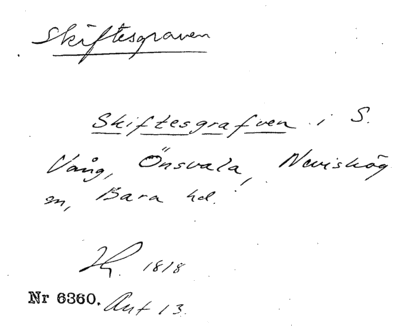 Skiftesgraven
Skiftesgrafven i S.
Vång, Önsvala, Nevishög
sn, Bara hd.
1818
Nr 6360. Akt 13.